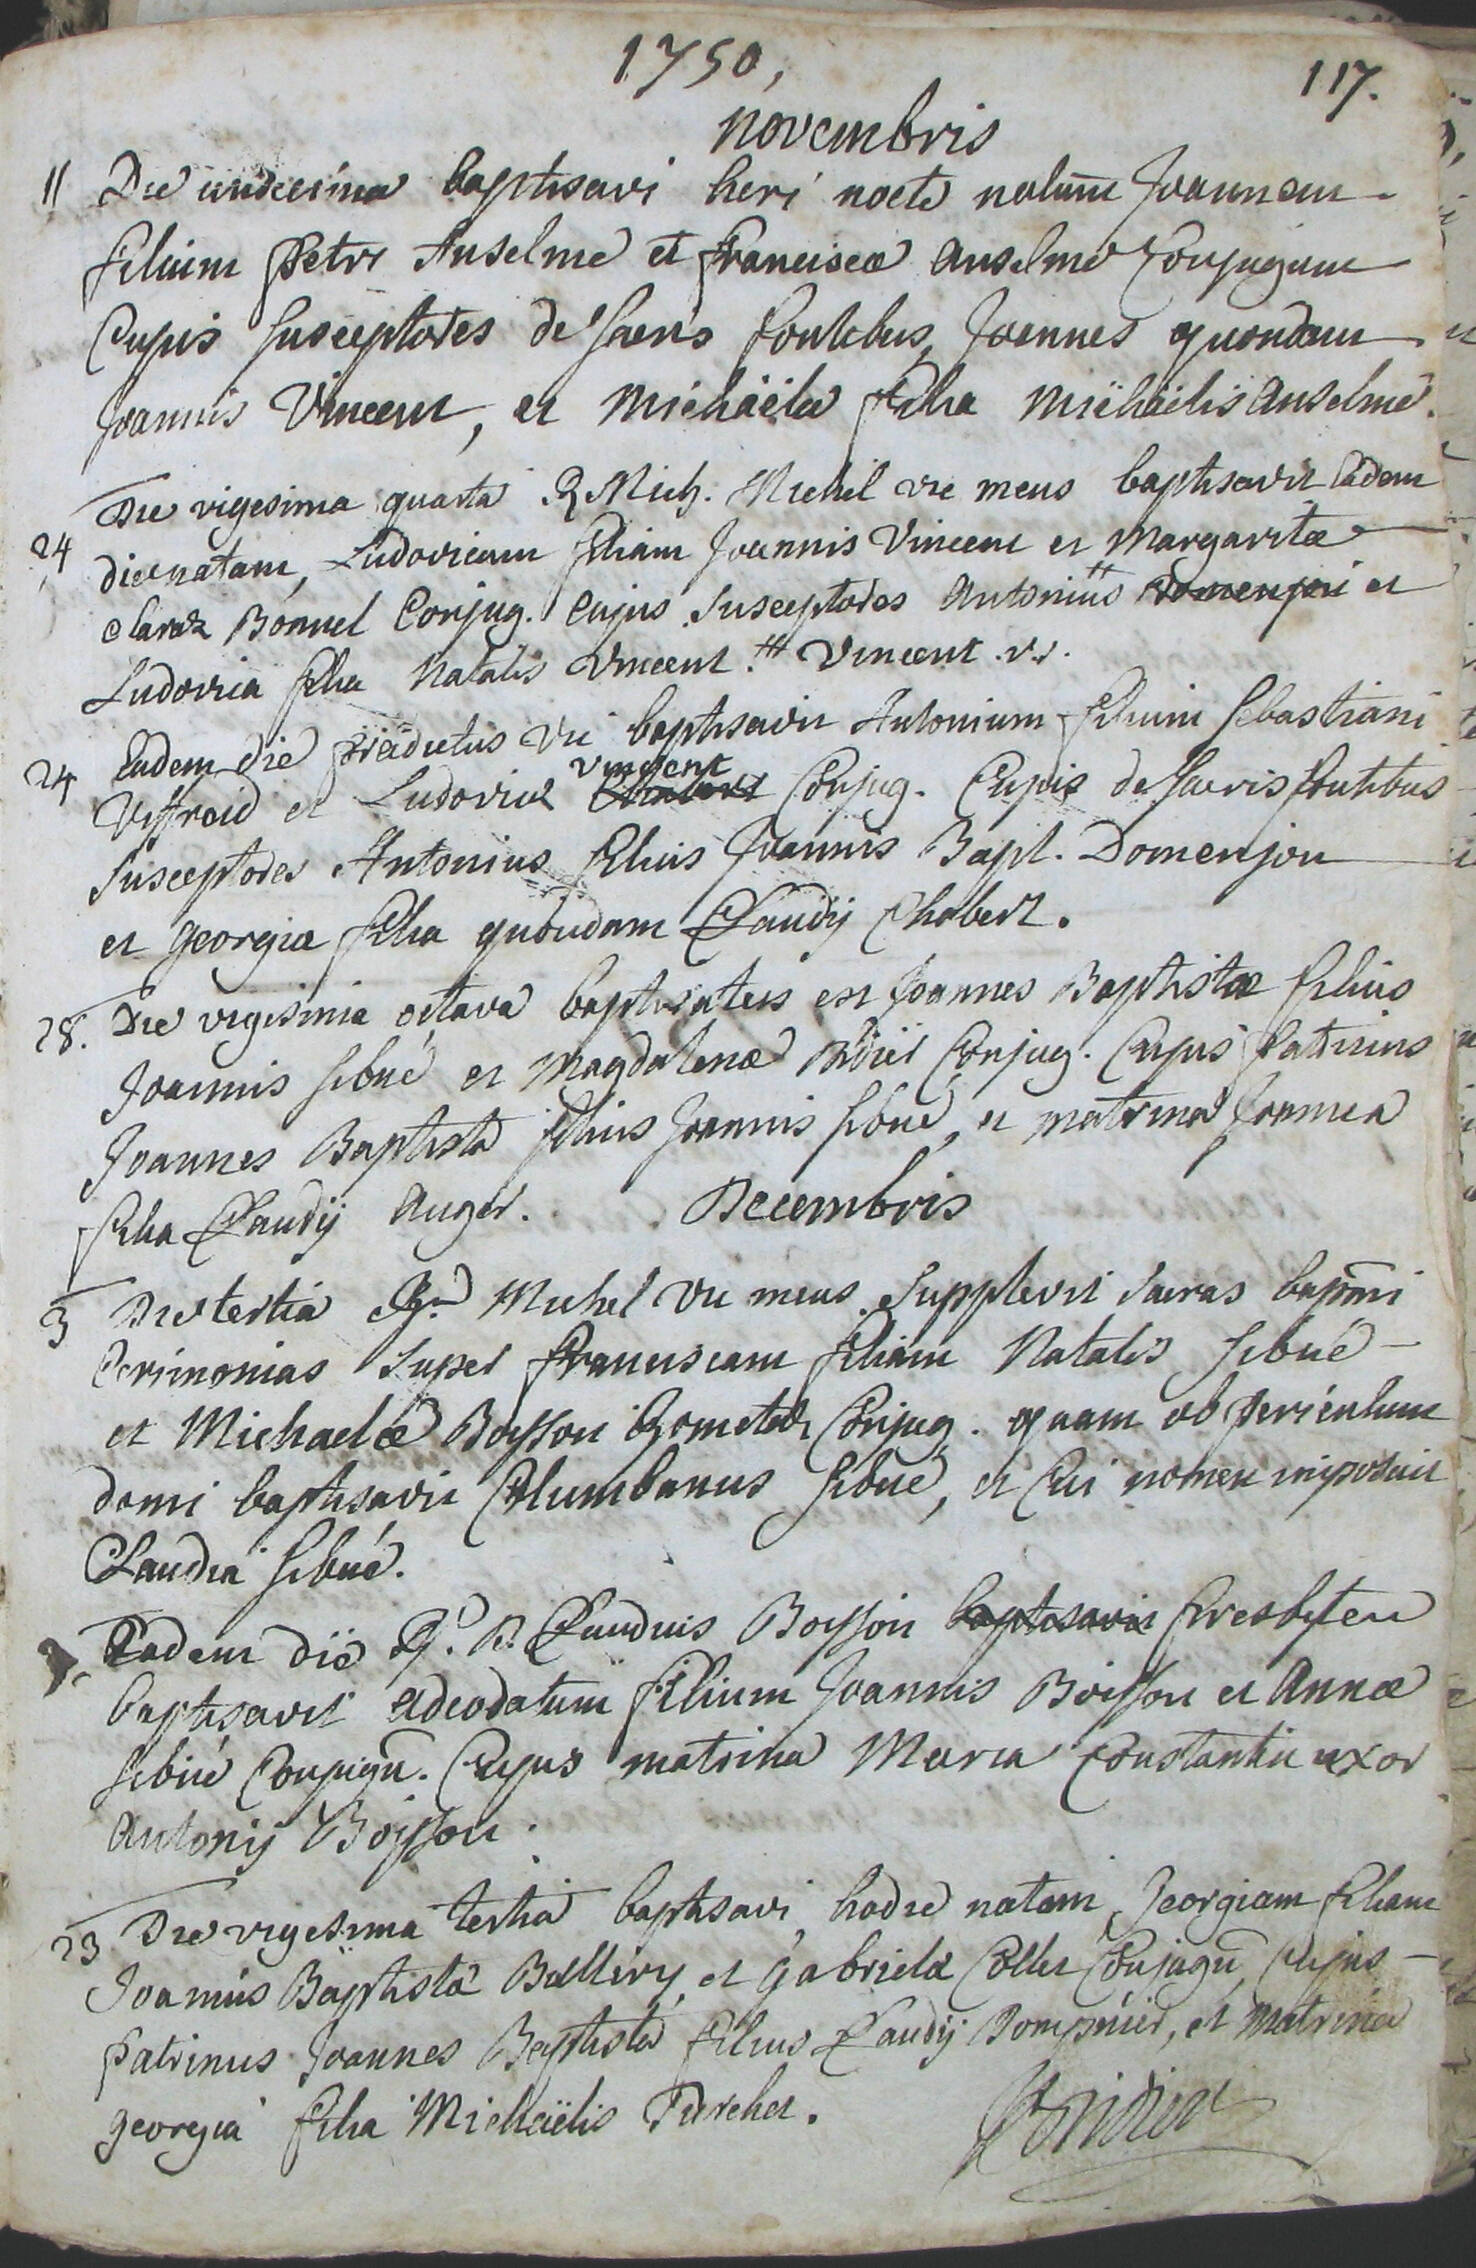 1750,
117.
novembris
11 Die undecima baptisavi heri nocte natum Joannem
filium Petri Anselme et franciscæ anselme Conjugum
Cujus susceptores de sacris fontibus, Joannes quondam
Joannis Vincent, et Michäela filia Michäelis anselme.
Die vigesima quarta R Mich. Michel vic meus baptisavit eadem
24 die natam, Ludovicam filiam Joannis Vincent et Margaritæ
claræ Bonnel Conjug. Cujus susceptores antonius # Domenjou et
Ludovica filia Natalis Vincent. ## Vincent
24 Eadem die prædictus Vic baptisavit Antonium filium sebastiani
vincent
Vffroid et Ludovicæ Conjug. Cujus de sacris fontibus
susceptores Antonius filius Joannis Bapt. Domenjou
et georgia filia quondam Claudij Chabert.
28. Die vigesima octava baptisatus est Joannes Baptista filius
Joannis sibué et Magdalenæ Didier Conjug. Cujus patrinus
Joannes Baptista filius Joannis sibué, et matrina Joannea
filia Claudij auger.
Decembris
3 Die tertia Rd Michel Vic meus supplevit sacras bapmi
Cerimonias super franciscam filiam Natalis sibué
et Michaelæ Boisson Gometaz Conjug. quam ob periculum
domi baptisavit Columbanus sibué, et Cui nomen imposuit
Claudia sibué.
Eadem die Rd. D. Claudius Boisson baptisavit presbyter
baptisavit adeodatum filium Joannis Boisson et annæ
sibué Conjugum. Cujus matrina Maria Constantin uxor
antonij Boisson.
23 Die vigesima tertia baptisavi hodie natam, Georgiam filiam
Joannis Baptistæ Baltery, et gabrielæ Collet Conjugum, Cujus
patrinus Joannes Baptista filius Claudij Dompnier, et Matrina
georgia filia Michäelis Turchet.